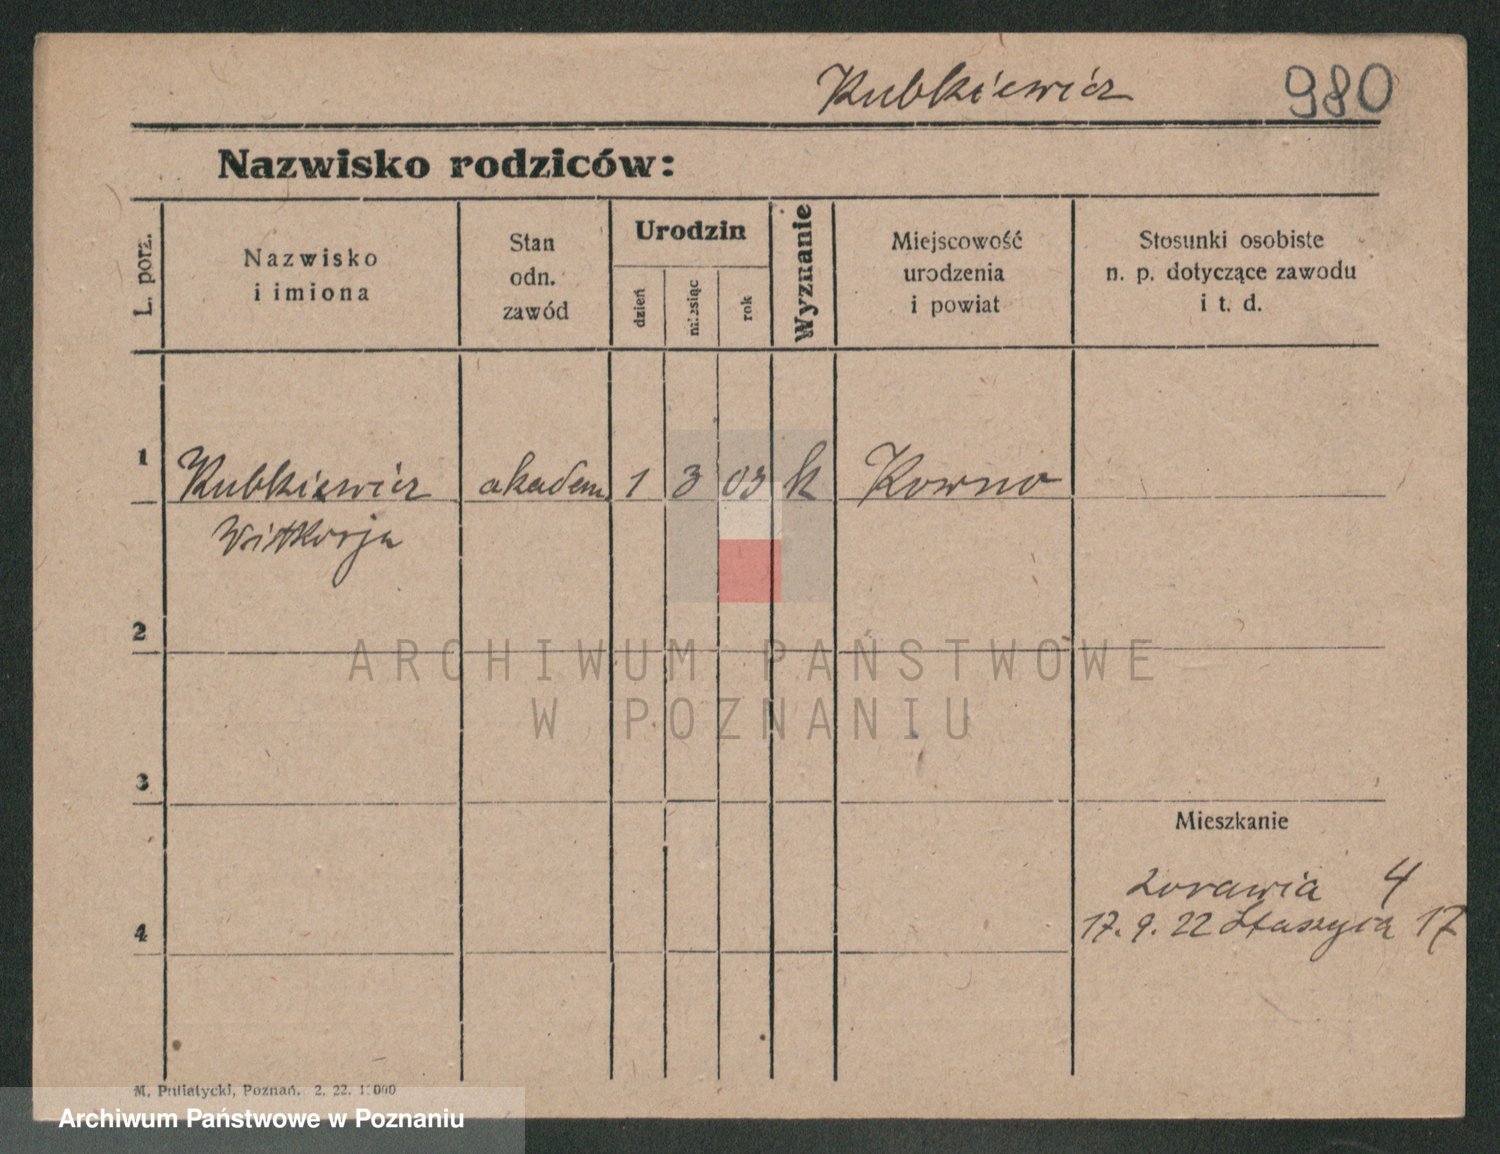 Rubkiewicz 980
Nazwisko rodziców:
L. porz.
Nazwisko
i imiona
Stan
odn.
zawód
Urodzin
dzień
miesiąc
rok
Wyznanie
Miejscowość
urodzenia
i powiat
Stosunki osobiste
n. p. dotyczące zawodu
i t. d.
1 Rubkiewicz akadem 1 3 03 k Kowno
Wiktorja
2
ARCHIWUM PAŃSTWOWE
W POZNANIU
3
Mieszkanie
Żorawia 4
17. 9. 22 Staszyca 17
4
M. Putiatycki, Poznań. 2. 22. 1000
Archiwum Państwowe w Poznaniu